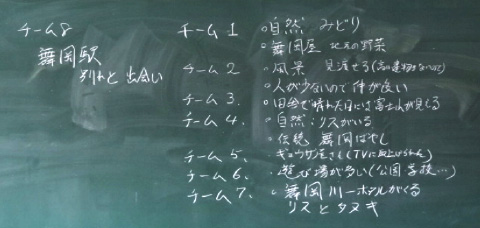 チーム8
舞岡駅
別れと出会い
チーム1 ○自然 みどり
○舞岡屋 地元の野菜
チーム2 ○風景 見渡せる(高い建物がないので)
○人が少ないので仲が良い
チーム3. ○田舎で晴れた日には富士山が見える
チーム4. ○自然:リスがいる
○伝統 舞岡ばやし
チーム5. ○ギョウザ屋さん(TVに取上げられた)
チーム6. ○遊び場が多い(公園 学校…)
チーム7. ○舞岡川ーホタルがくる
リスとタヌキ